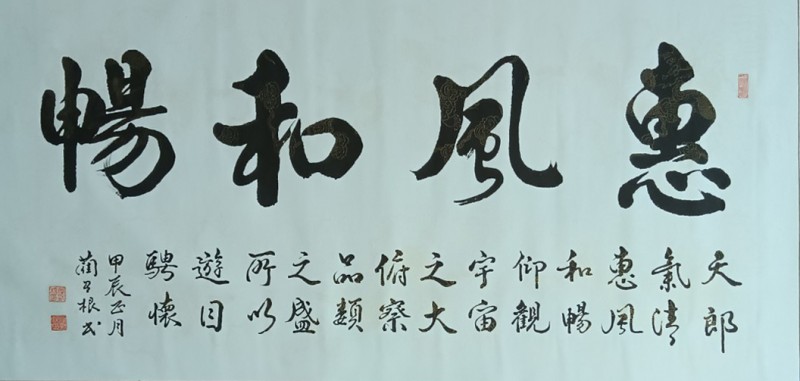 惠風和暢
天郎
氣清
惠風
和暢
仰觀
宇宙
之大
俯察
品類
之盛
所以
遊目
騁懷
甲辰正月
根